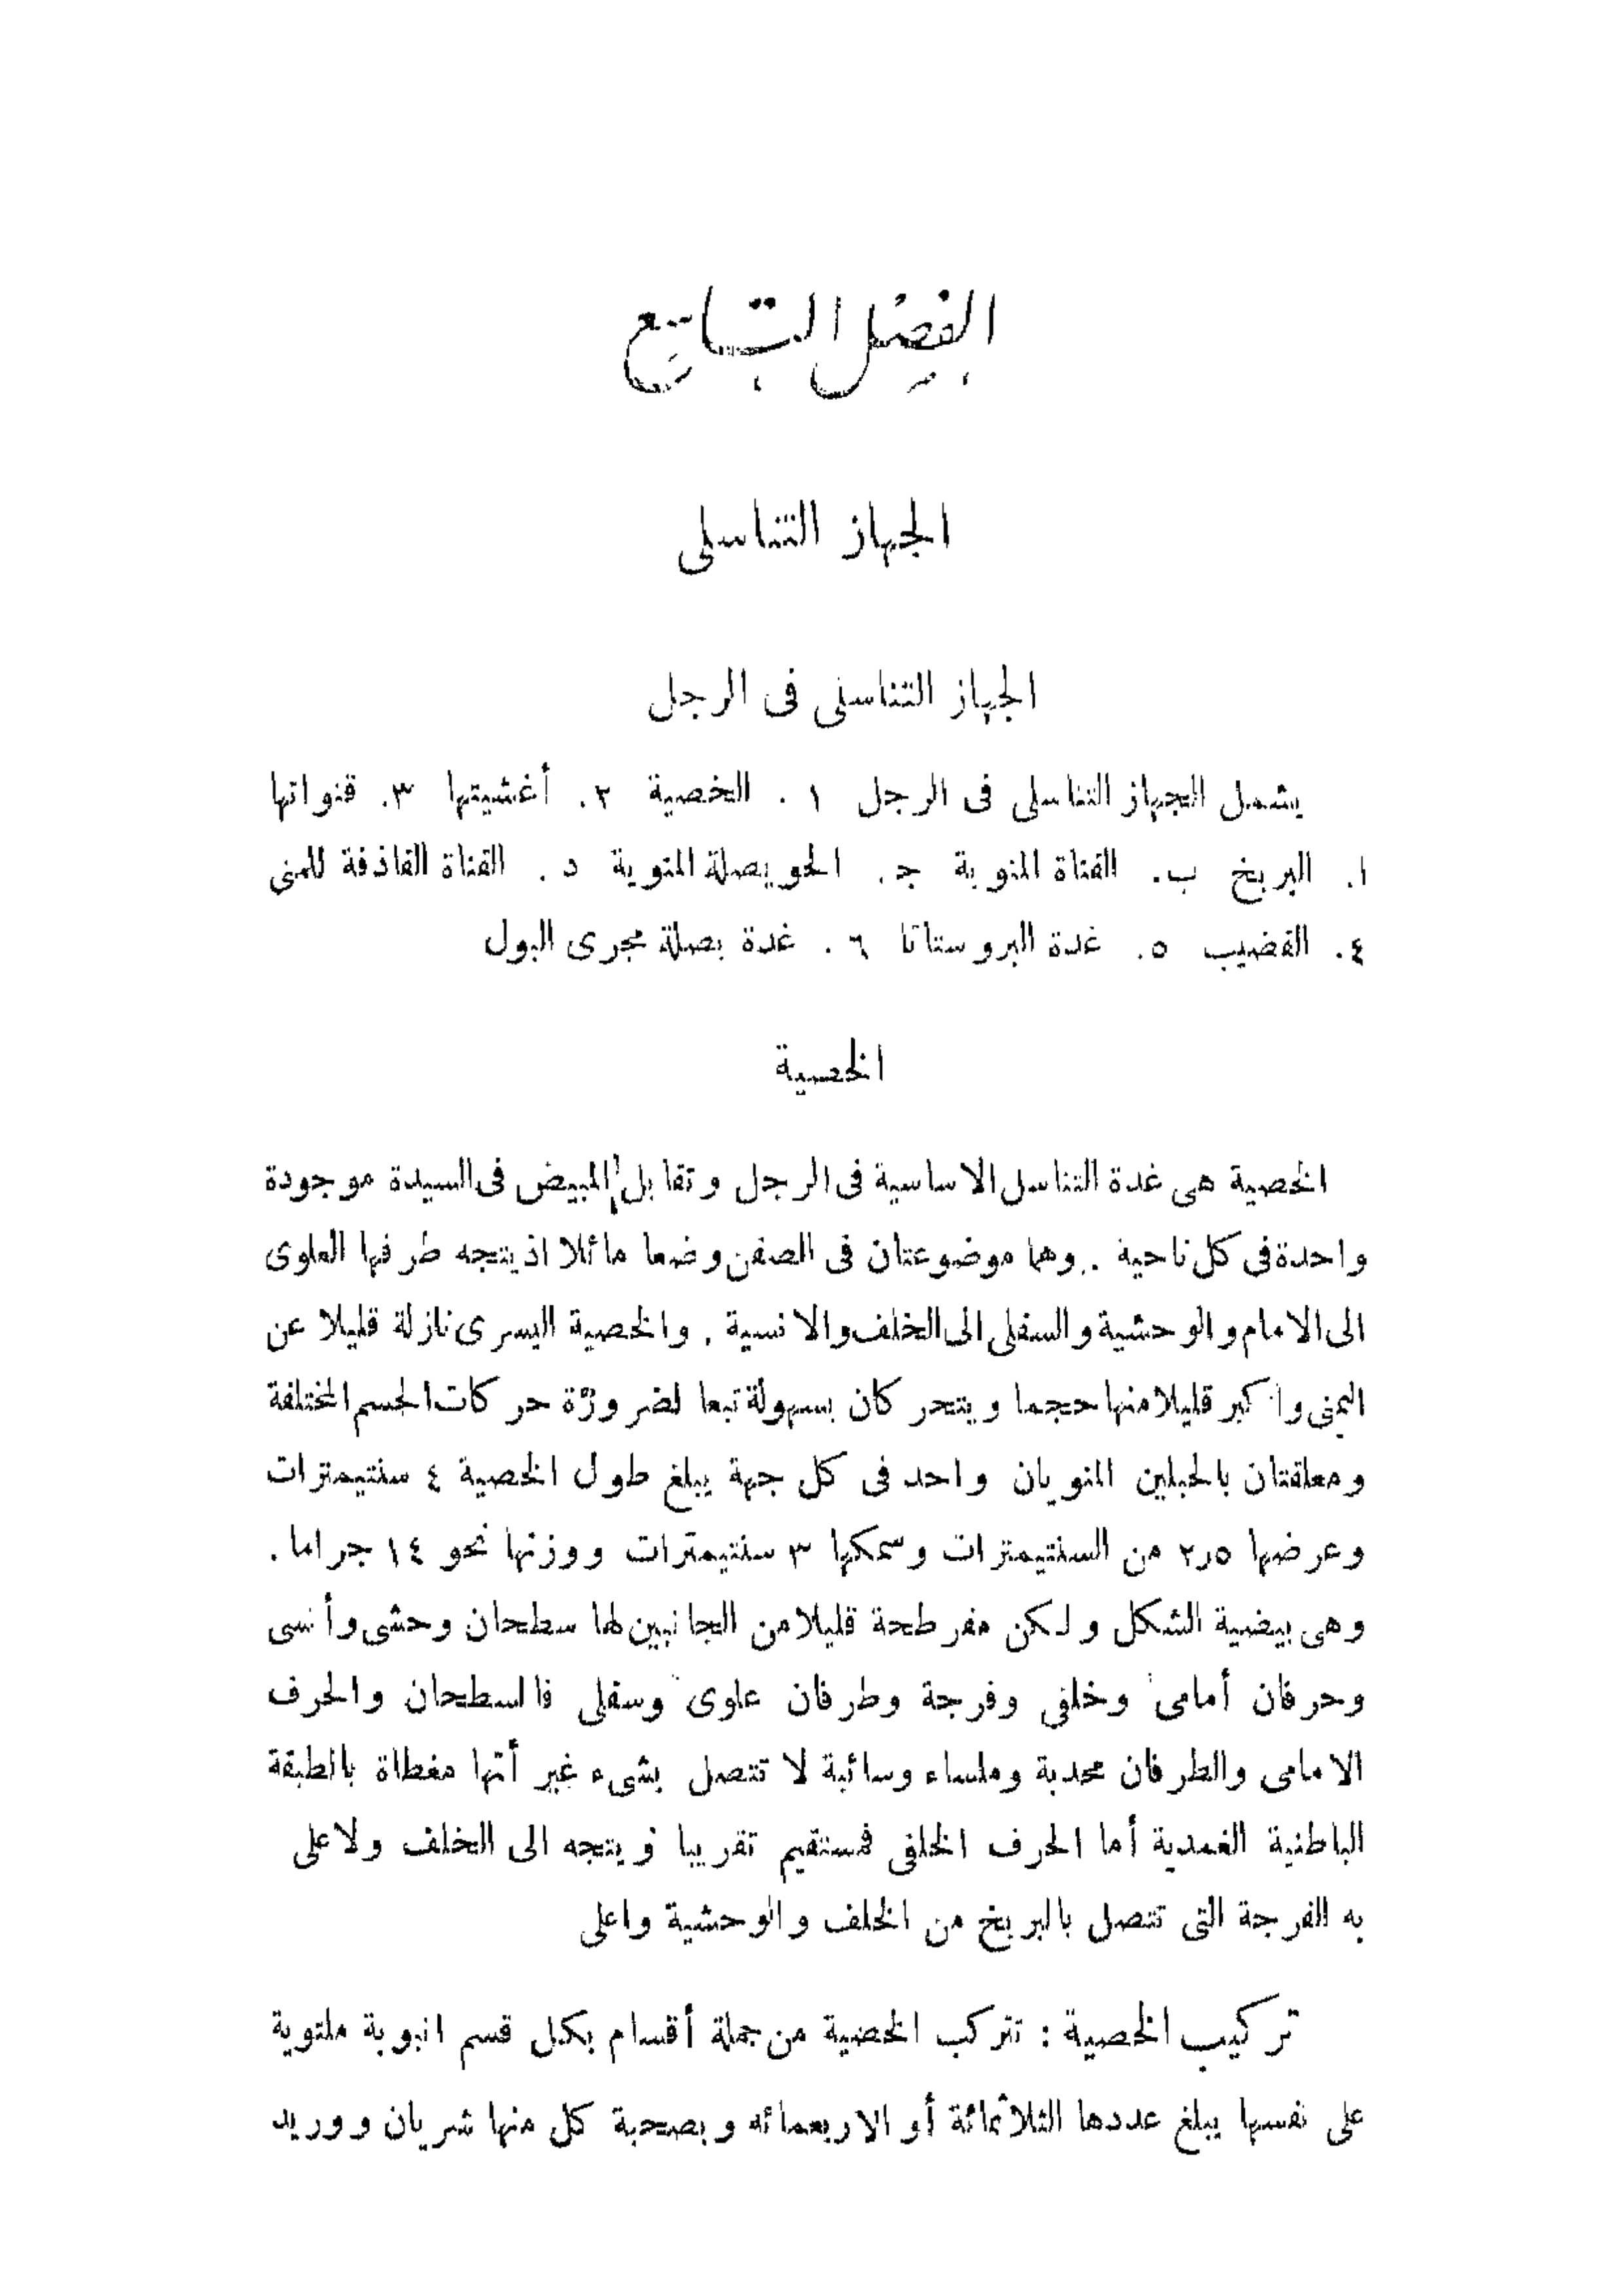 الفصل التاسع
الجهاز التناسلى
الجهاز التناسلى فى الرجل
يشمل الجهاز التناسلى فى الرجل ١ . الخصية ٢ . أغشيتها ٣. قنواتها
ا. البربخ ب. القناة المنوية جـ. الحويصلة المنوية د . القناة القاذفة للمنى
٤. القضيب ٥. غدة البروستاتا ٦ . غدة بصلة مجرى البول
الخصية
الخصية هى غدة التناسل الاساسية فى الرجل وتقابل المبيض فى السيدة موجودة
واحدة فى كل ناحية . وهما موضوعتان فى الصفن وضعا مائلا اذ يتجه طرفها العلوى
الى الامام والوحشية والسفلى الى الخلف والانسية . والخصية اليسرى نازلة قليلا عن
اليمنى واكبر قليلا منها حجما ويتحركان بسهولة تبعا لضرورة حركات الجسم المختلفة
ومعلقتان بالحبلين المنويان واحد فى كل جهة يبلغ طول الخصية ٤ سنتيمترات
وعرضها ٢ر٥ من السنتيمترات وسمكها ٣ سنتيمترات ووزنها نحو ١٤ جراما .
وهى بيضية الشكل ولكن مفرطحة قليلا من الجانبين لها سطحان وحشى وأنسى
وحرفان أمامى وخلفى وفرجة وطرفان علوى وسفلى فالسطحان والحرف
الامامى والطرفان محدبة وملساء وسائبة لا تتصل بشىء غير أنها مغطاة بالطبقة
الباطنية الغمدية أما الحرف الخلفى فمستقيم تقريبا ويتجه الى الخلف ولاعلى
به الفرجة التى تتصل بالبربخ من الخلف والوحشية واعلى
تركيب الخصية : تتركب الخصية من جملة أقسام بكل قسم انبوبة ملتوية
على نفسها يبلغ عددها الثلاثمائة أو الاربعمائه وبصحبة كل منها شريان ووريد